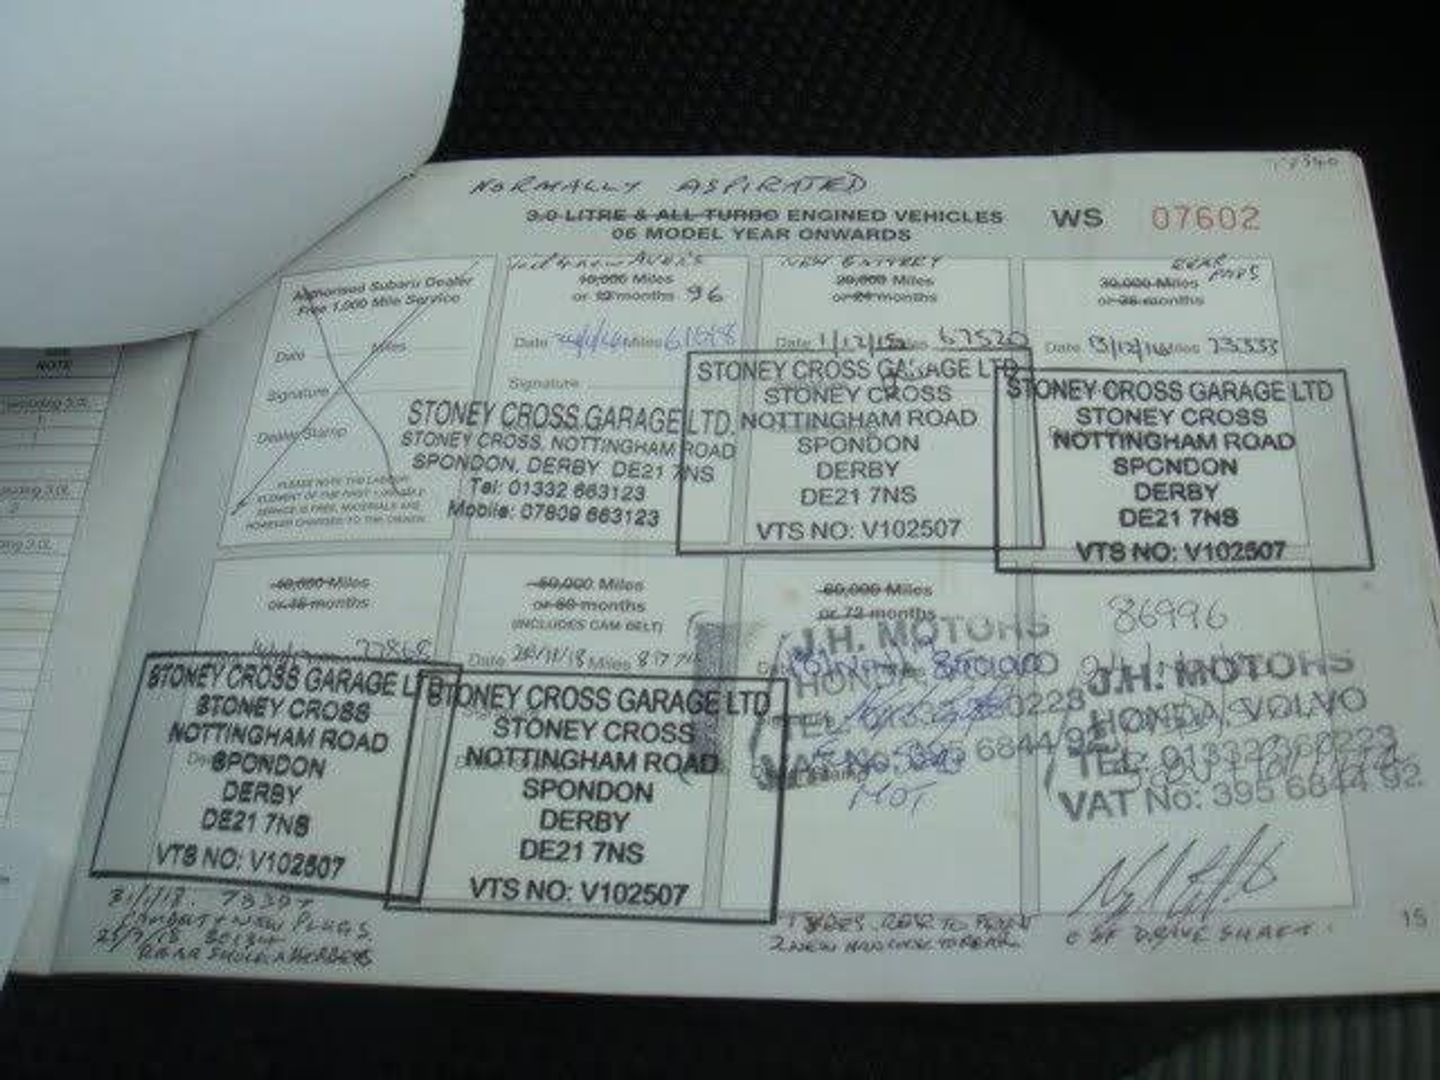 NORMALLY ASPIRATED
3.0 LITRE & ALL TURBO ENGINED VEHICLES WS 07602
06 MODEL YEAR ONWARDS
Authorised Subaru Dealer
Free 1,000 Mile Service
Date Miles
Signature
Dealer Stamp
PLEASE NOTE THE LABOUR
ELEMENT OF THE FIRST 1,000 MILE
SERVICE IS FREE, MATERIALS ARE
HOWEVER CHARGED TO THE OWNER.
10,000 Miles
or 12 months 96
Date Miles
Signature
STONEY CROSS GARAGE LTD.
STONEY CROSS, NOTTINGHAM ROAD
SPONDON, DERBY DE21 7NS
Tel: 01332 663123
Mobile: 07809 663123
NEW BATTERY
20,000 Miles
or 24 months
Date 1/12/15 67520
STONEY CROSS GARAGE LTD
STONEY CROSS
NOTTINGHAM ROAD
SPONDON
DERBY
DE21 7NS
VTS NO: V102507
REAR
PADS
30,000 Miles
or 36 months
Date 13/12/16 Miles 73333
STONEY CROSS GARAGE LTD
STONEY CROSS
NOTTINGHAM ROAD
SPONDON
DERBY
DE21 7NS
VTS NO: V102507
40,000 Miles
or 48 months
77868
STONEY CROSS GARAGE LTD
STONEY CROSS
NOTTINGHAM ROAD
SPONDON
DERBY
DE21 7NS
VTS NO: V102507
50,000 Miles
or 60 months
(INCLUDES CAM BELT)
Date Miles
STONEY CROSS GARAGE LTD
STONEY CROSS
NOTTINGHAM ROAD
SPONDON
DERBY
DE21 7NS
VTS NO: V102507
60,000 Miles
or 72 months
J.H. MOTORS
HONDA
TEL
VAT No: 395 6844 92
MOT
86996
J.H. MOTORS
HONDA, VOLVO
TEL: 01332 360223
VAT No: 395 6844 92
31/1/18.
CAMBELT + NEW PLUGS
REAR SHOCK ABSORBERS
REAR TO FRONT
2 NEW TO REAR
OSF DRIVE SHAFT.
15